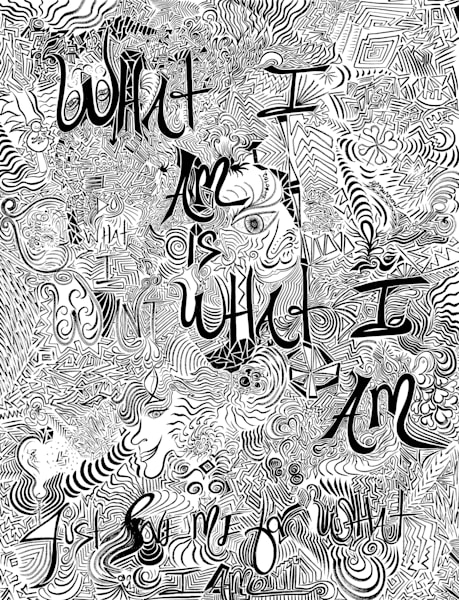 WHat I
AM
is
WHat I
AM
DO
WHAT
I
WANT
Just me for WHat
I AM